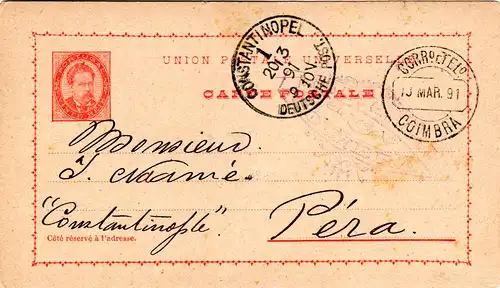 UNION POSTALE UNIVERSELLE
CARTE POSTALE
CONSTANTINOPEL 1
20 3
91
9-10 V
DEUTSCHE POST
CORRO E TELO
15 MAR. 91
COIMBRA
Monsieur
"Constantinople"
Péra.
Côté réservé à l'adresse.